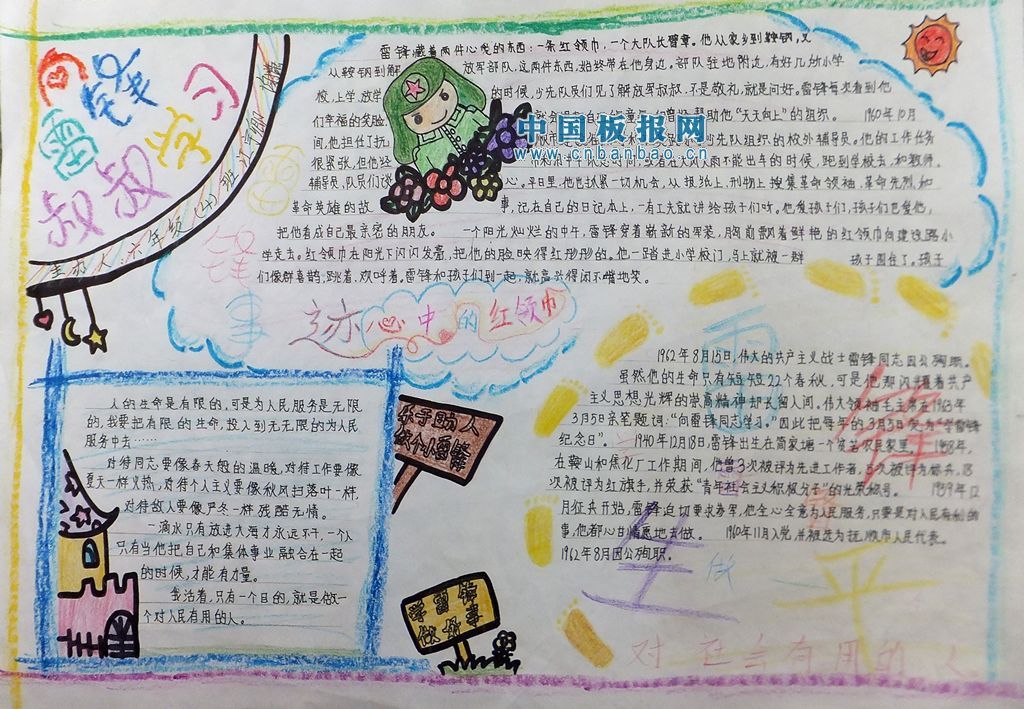 向雷锋叔叔学习
主办人:六年级(4)班
雷锋藏着两件心爱的东西:一条红领巾,一个大队长臂章。他从家乡到鞍钢,又
从鞍钢到解放军部队,这两件东西,始终带在他身边。部队驻地附近,有好几所小学
校,上学,放学的时候,少先队员们见了解放军叔叔,不是敬礼,就是问好。雷锋每次看到他
们幸福的笑脸
帮助他“天天向上”的组织。 1960年10月
间,他担任了抚
先队组织的校外辅导员。他的工作任务
很紧张,但他经
雨不能出车的时候,跑到学校去,和教师、
辅导员、队员们谈心。平日里,他也抓紧一切机会,从报纸上、刊物上搜集革命领袖、革命先烈和
革命英雄的故事,记在自己的日记本上,一有工夫就讲给孩子们听。他爱孩子们,孩子们也爱他,
把他看成自己最亲密的朋友。 一个阳光灿烂的中午,雷锋穿着崭新的军装,胸前飘着鲜艳的红领巾向建设路小
学走去。红领巾在阳光下闪闪发亮,把他的脸映得红彤彤的。他一踏进小学校门,马上就被一群孩子围住了。孩子
们像群喜鹊,跳着、欢呼着。雷锋和孩子们到一起,就高兴得闭不嘴地笑。
中国板报网
www.cnbanbao.cn
锋事迹
心中的红领巾
人的生命是有限的,可是为人民服务是无限
的,我要把有限的生命,投入到无无限的为人民
服务中去……
对待同志要像春天般的温暖,对待工作要像
夏天一样火热,对待个人主义要像秋风扫落叶一样,
对待敌人要像严冬一样残酷无情。
一滴水只有放进大海才永远不干,一个人
只有当他把自己和集体事业融合在一起
的时候,才能有力量。
我活着,只有一个目的,就是做一
个对人民有用的人。
乐于助人
做个小雷锋
学雷锋
做好事
1962年8月15日,伟大的共产主义战士雷锋同志因公殉职。
虽然他的生命只有短短22个春秋,可是他那闪耀着共产
主义思想光辉的崇高精神却长留人间。伟大领袖毛主席在1963年
3月5日亲笔题词:“向雷锋同志学习。”因此把每年的3月5日定为“学雷锋
纪念日”。 1940年12月18日,雷锋出生在简家塘一个贫苦农民家里。 1958年,
在鞍山和焦化厂工作期间,他曾3次被评为先进工作者,5次被评为标兵,18
次被评为红旗手,并荣获“青年社会主义积极分子”的光荣称号。 1959年12
月征兵开始,雷锋迫切要求参军,他全心全意为人民服务,只要是对人民有利的
事,他都心甘情愿地去做。 1960年11月入党,并被选为抚顺市人民代表。
1962年8月因公殉职。
雷锋生平
做
对社会有用的人